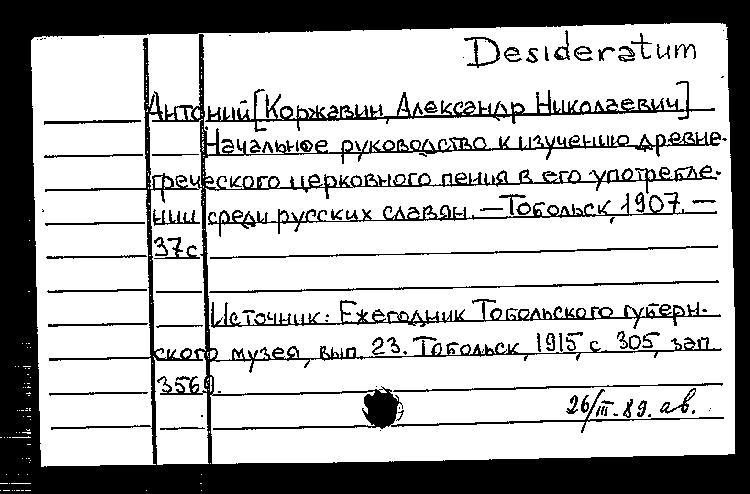 Desideratum
Антоний [Коржавин, Александр Николаевич]
Начальное руководство к изучению древне-
греческого церковного пения в его употребле-
нии среди русских славян. — Тобольск, 1907. —
37с
Источник: Ежегодник Тобольского губерн-
ского музея, вып. 23. Тобольск, 1915, с. 305, зап.
3569.
26/III-89. ав.